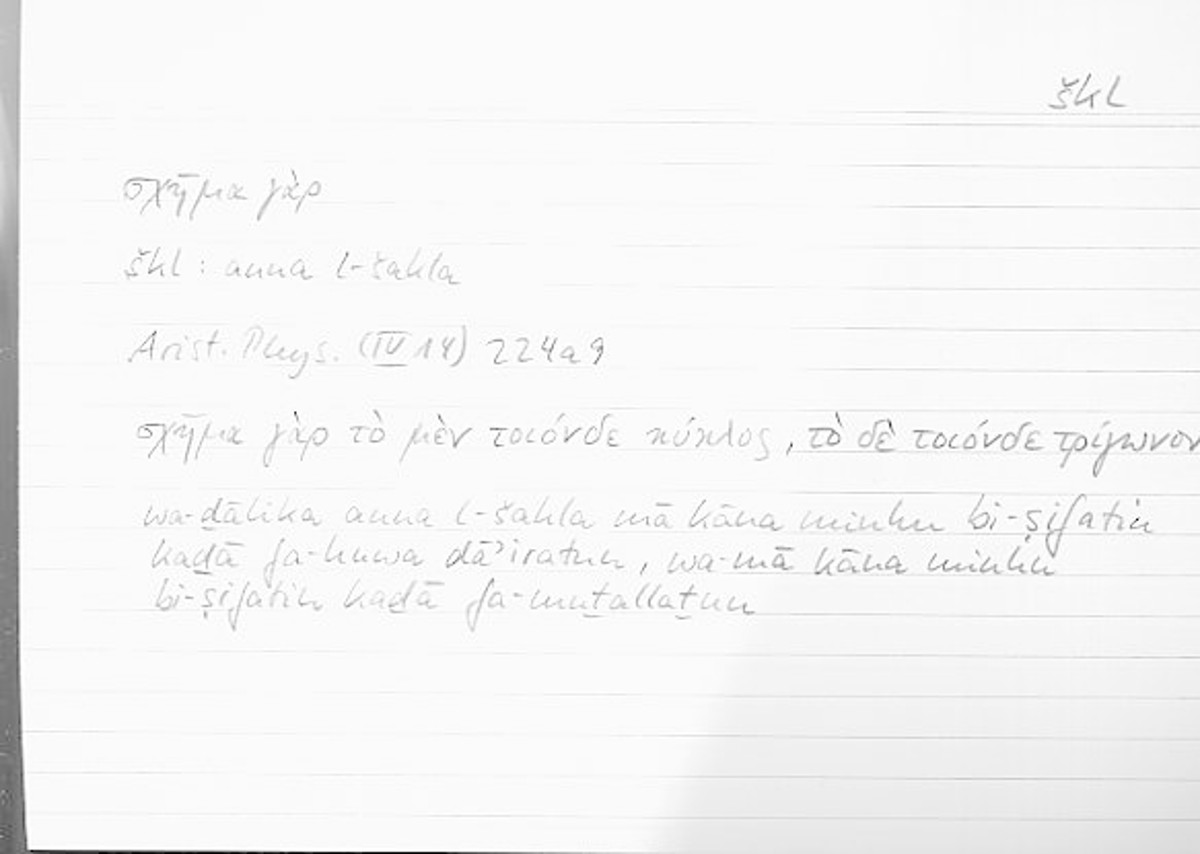 škl
σχῆμα γὰρ
škl : anna l-šakla
Arist. Phys. (IV 14) 224a9
σχῆμα γὰρ τὸ μὲν τοιόνδε κύκλος, τὸ δὲ τοιόνδε τρίγωνον
wa-ḏālika anna l-šakla mā kāna minhu bi-ṣifatin
kaḏā fa-huwa dāʾiratun, wa-mā kāna minhu
bi-ṣifatin kaḏā fa-muṯallaṯun